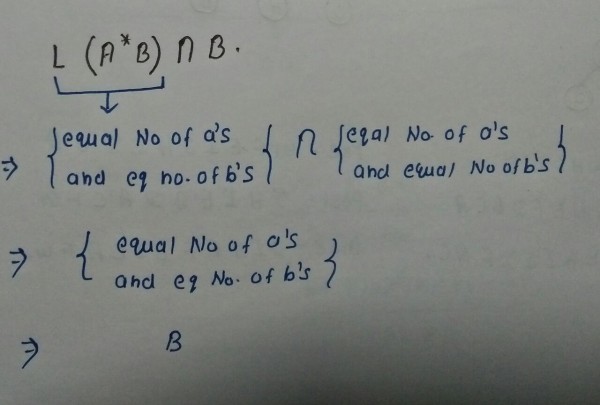 L (A*B) ∩ B.
⇒ {equal No of a's } ∩ {eqal No. of a's }
{and eq no. of b's } {and equal No of b's }
⇒ { equal No of a's }
{ and eq No. of b's }
⇒ B